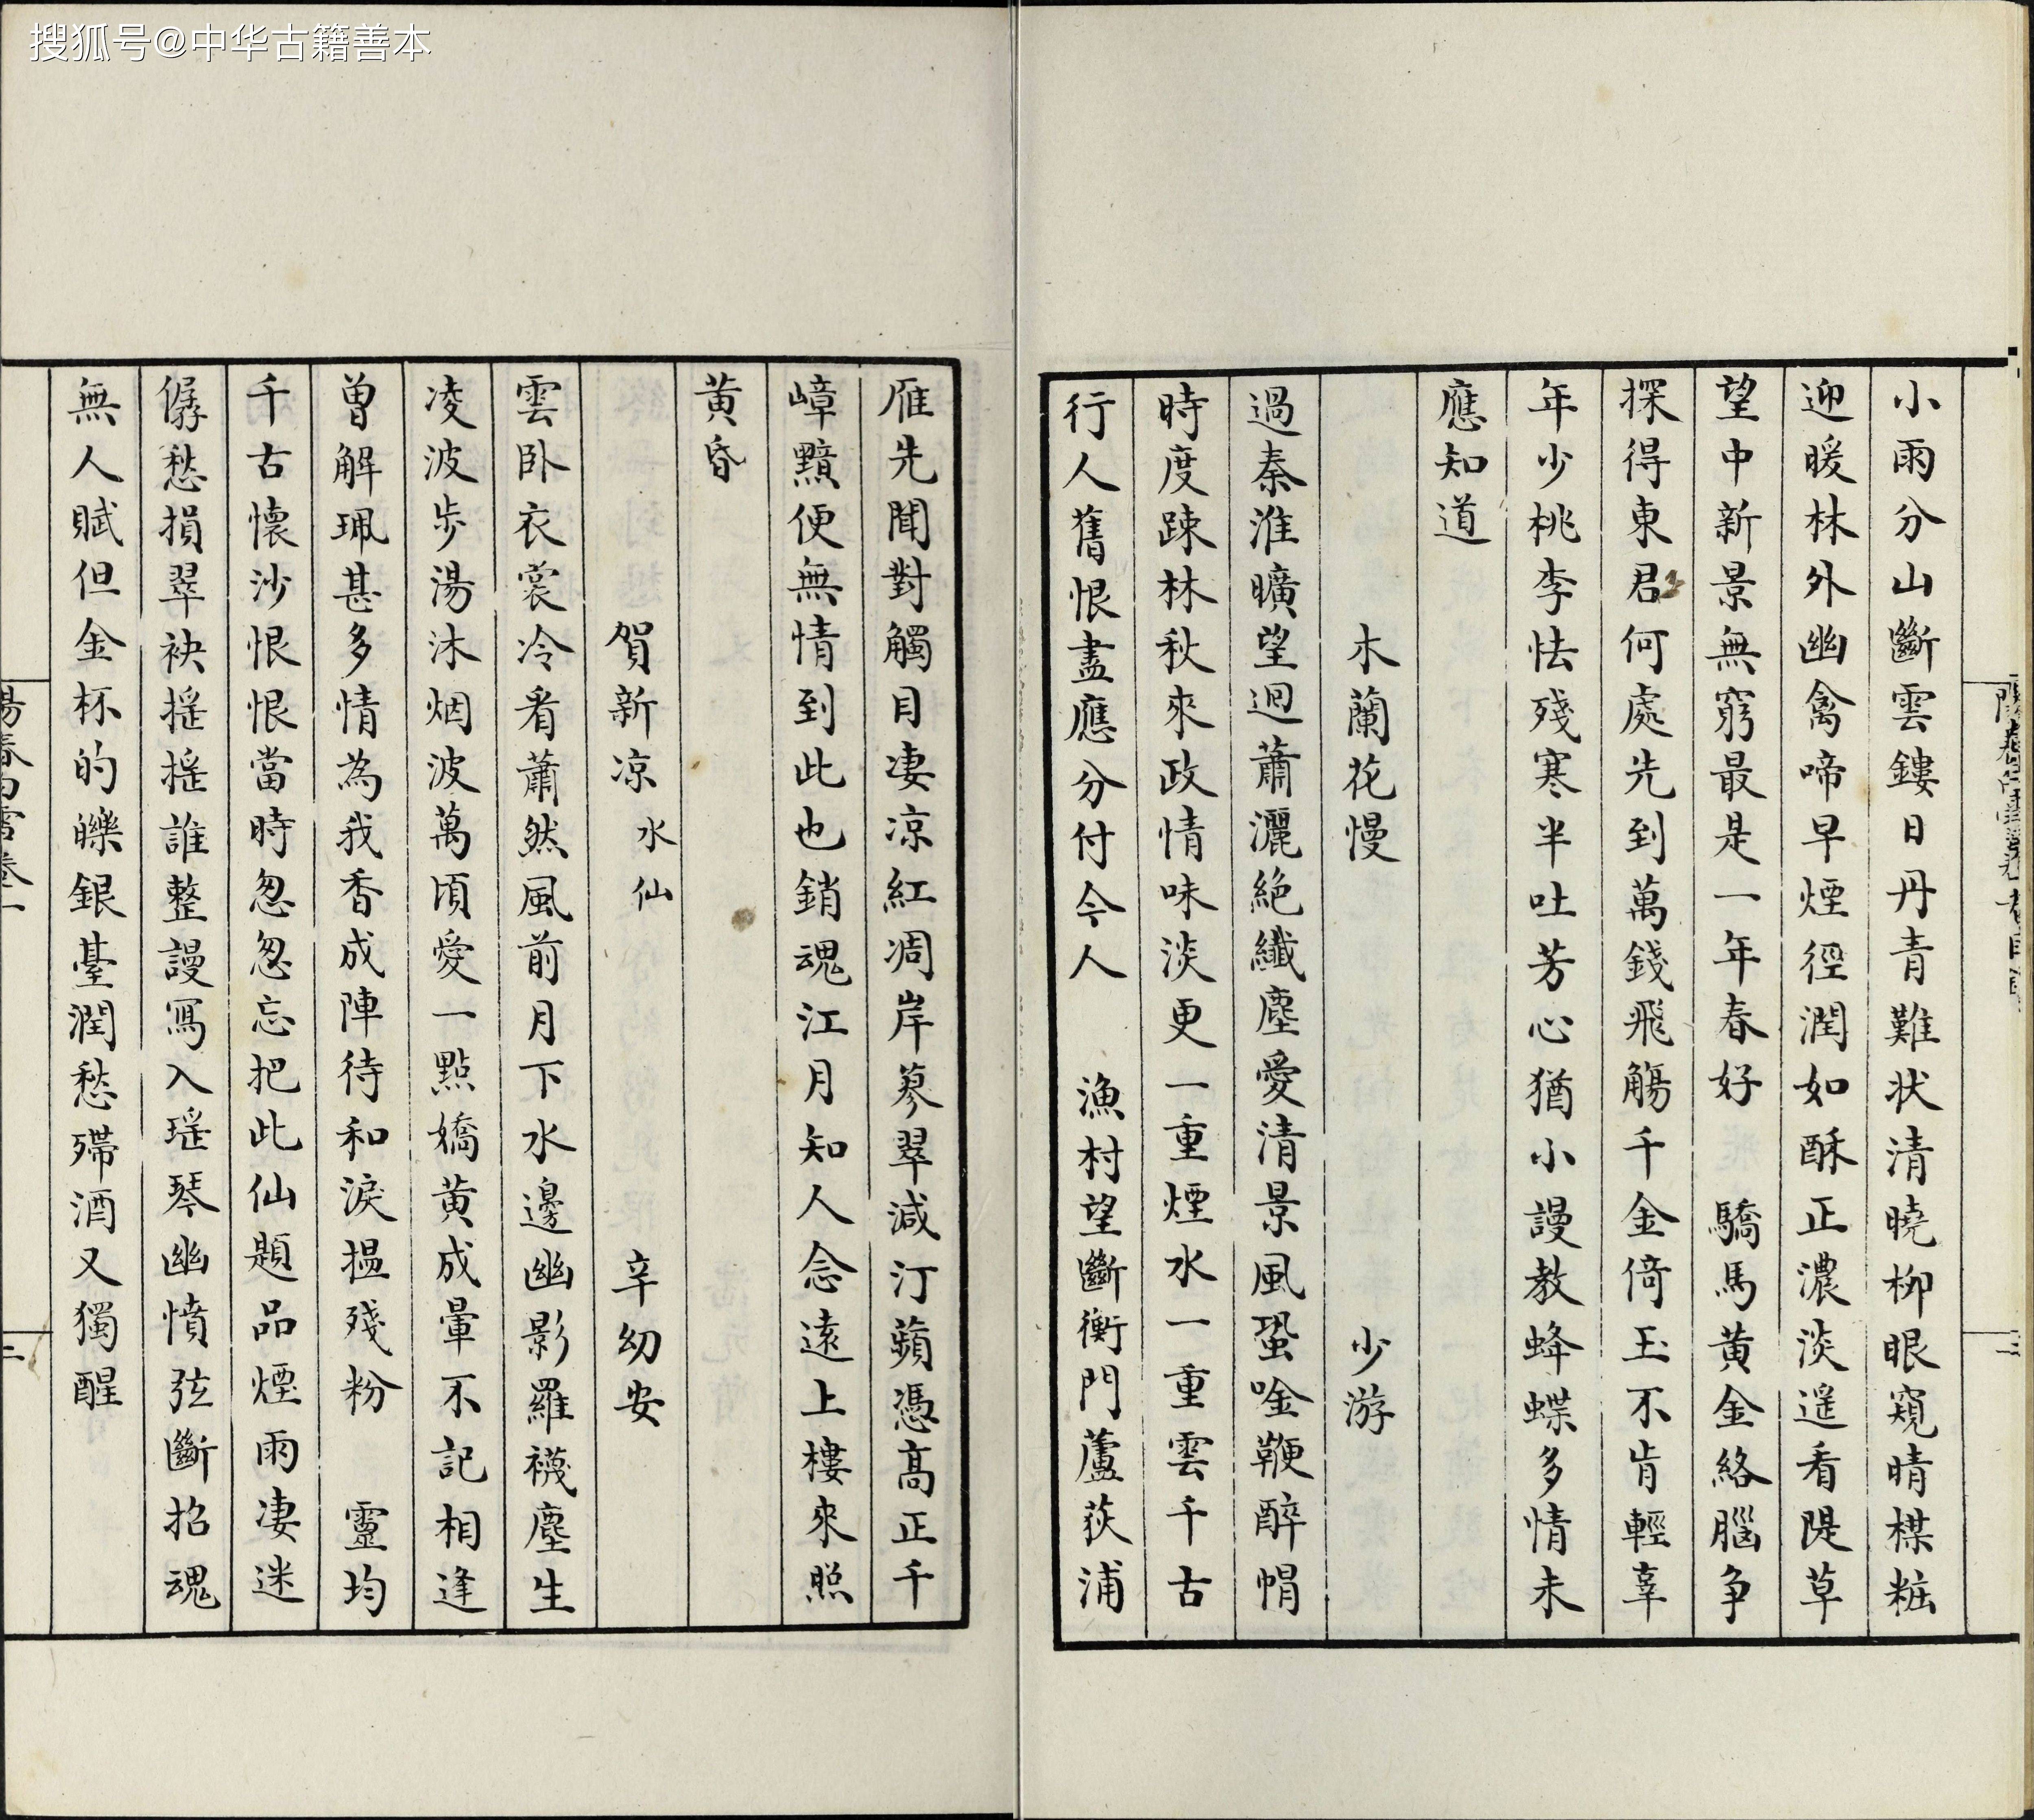 搜狐号@中华古籍善本
小雨分山斷雲鏤日丹青難状清曉柳眼窺晴楳粧
迎暖林外幽禽啼早煙徑潤如酥正濃淡遥看隄草
望中新景無窮最是一年春好　驕馬黄金絡腦争
探得東君何處先到萬錢飛觴千金倚玉不肯輕辜
年少桃李怯殘寒半吐芳心猶小謾教蜂蝶多情未
應知道
木蘭花慢　少游
過秦淮曠望迥蕭灑絶纖塵愛清景風蛩唫鞭醉帽
時度踈林秋來政情味淡更一重煙水一重雲千古
行人舊恨盡應分付今人　漁村望斷衡門蘆荻浦
雁先聞對觸目凄凉紅凋岸蓼翠減汀蘋憑髙正千
嶂黯便無情到此也銷魂江月知人念遠上樓來照
黄昏
賀新凉　水仙　辛幼安
雲卧衣裳冷看蕭然風前月下水邊幽影羅襪塵生
凌波步湯沐烟波萬頃愛一點嬌黄成暈不記相逢
曾解珮甚多情為我香成陣待和淚揾殘粉　靈均
千古懷沙恨恨當時怱怱忘把此仙題品煙雨凄迷
僝愁損翠袂摇摇誰整謾寫入瑶琴幽憤弦斷招魂
無人賦但金杯的皪銀臺潤愁殢酒又獨醒
陽春白雪卷一
二